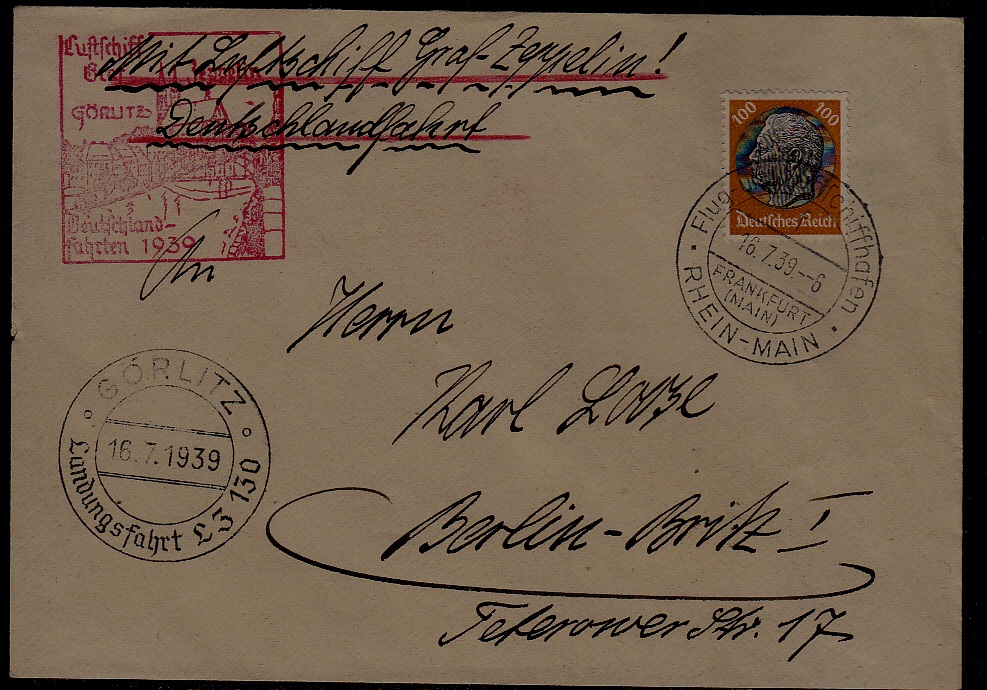 Luftschiff
Graf Zeppelin
GÖRLITZ
Deutschland-
fahrten 1939
Mit Luftschiff Graf-Zeppelin!
Deutschlandfahrt
100 100
Deutsches Reich
Flug- Luftschiffhafen
16.7.39.-6
FRANKFURT
(MAIN)
RHEIN-MAIN
An
Herrn
Karl
GÖRLITZ
16.7.1939
Landungsfahrt LZ 130
Berlin-Britz I
Teterower Str. 17